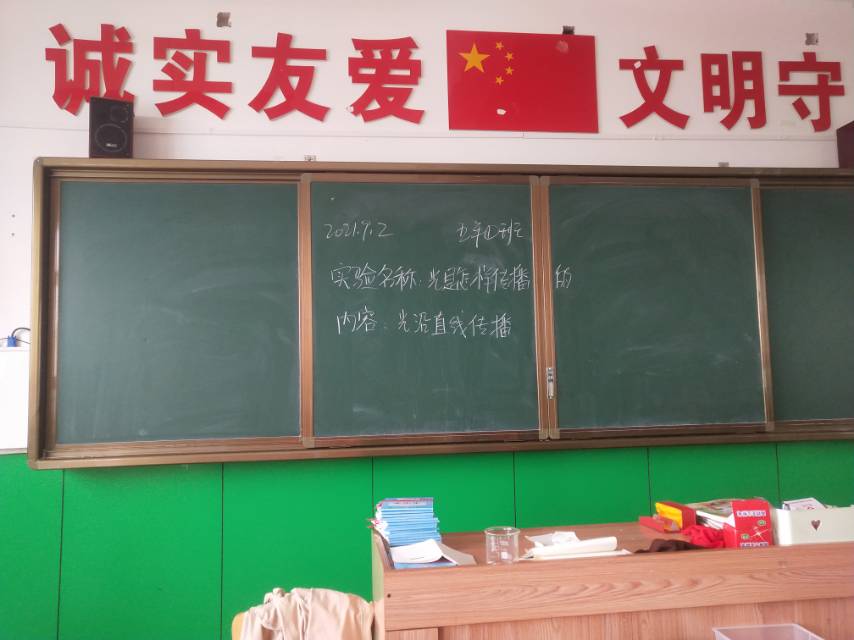 诚实友爱 文明守
2021.9.2 五年①班
实验名称:光是怎样传播的
内容:光沿直线传播